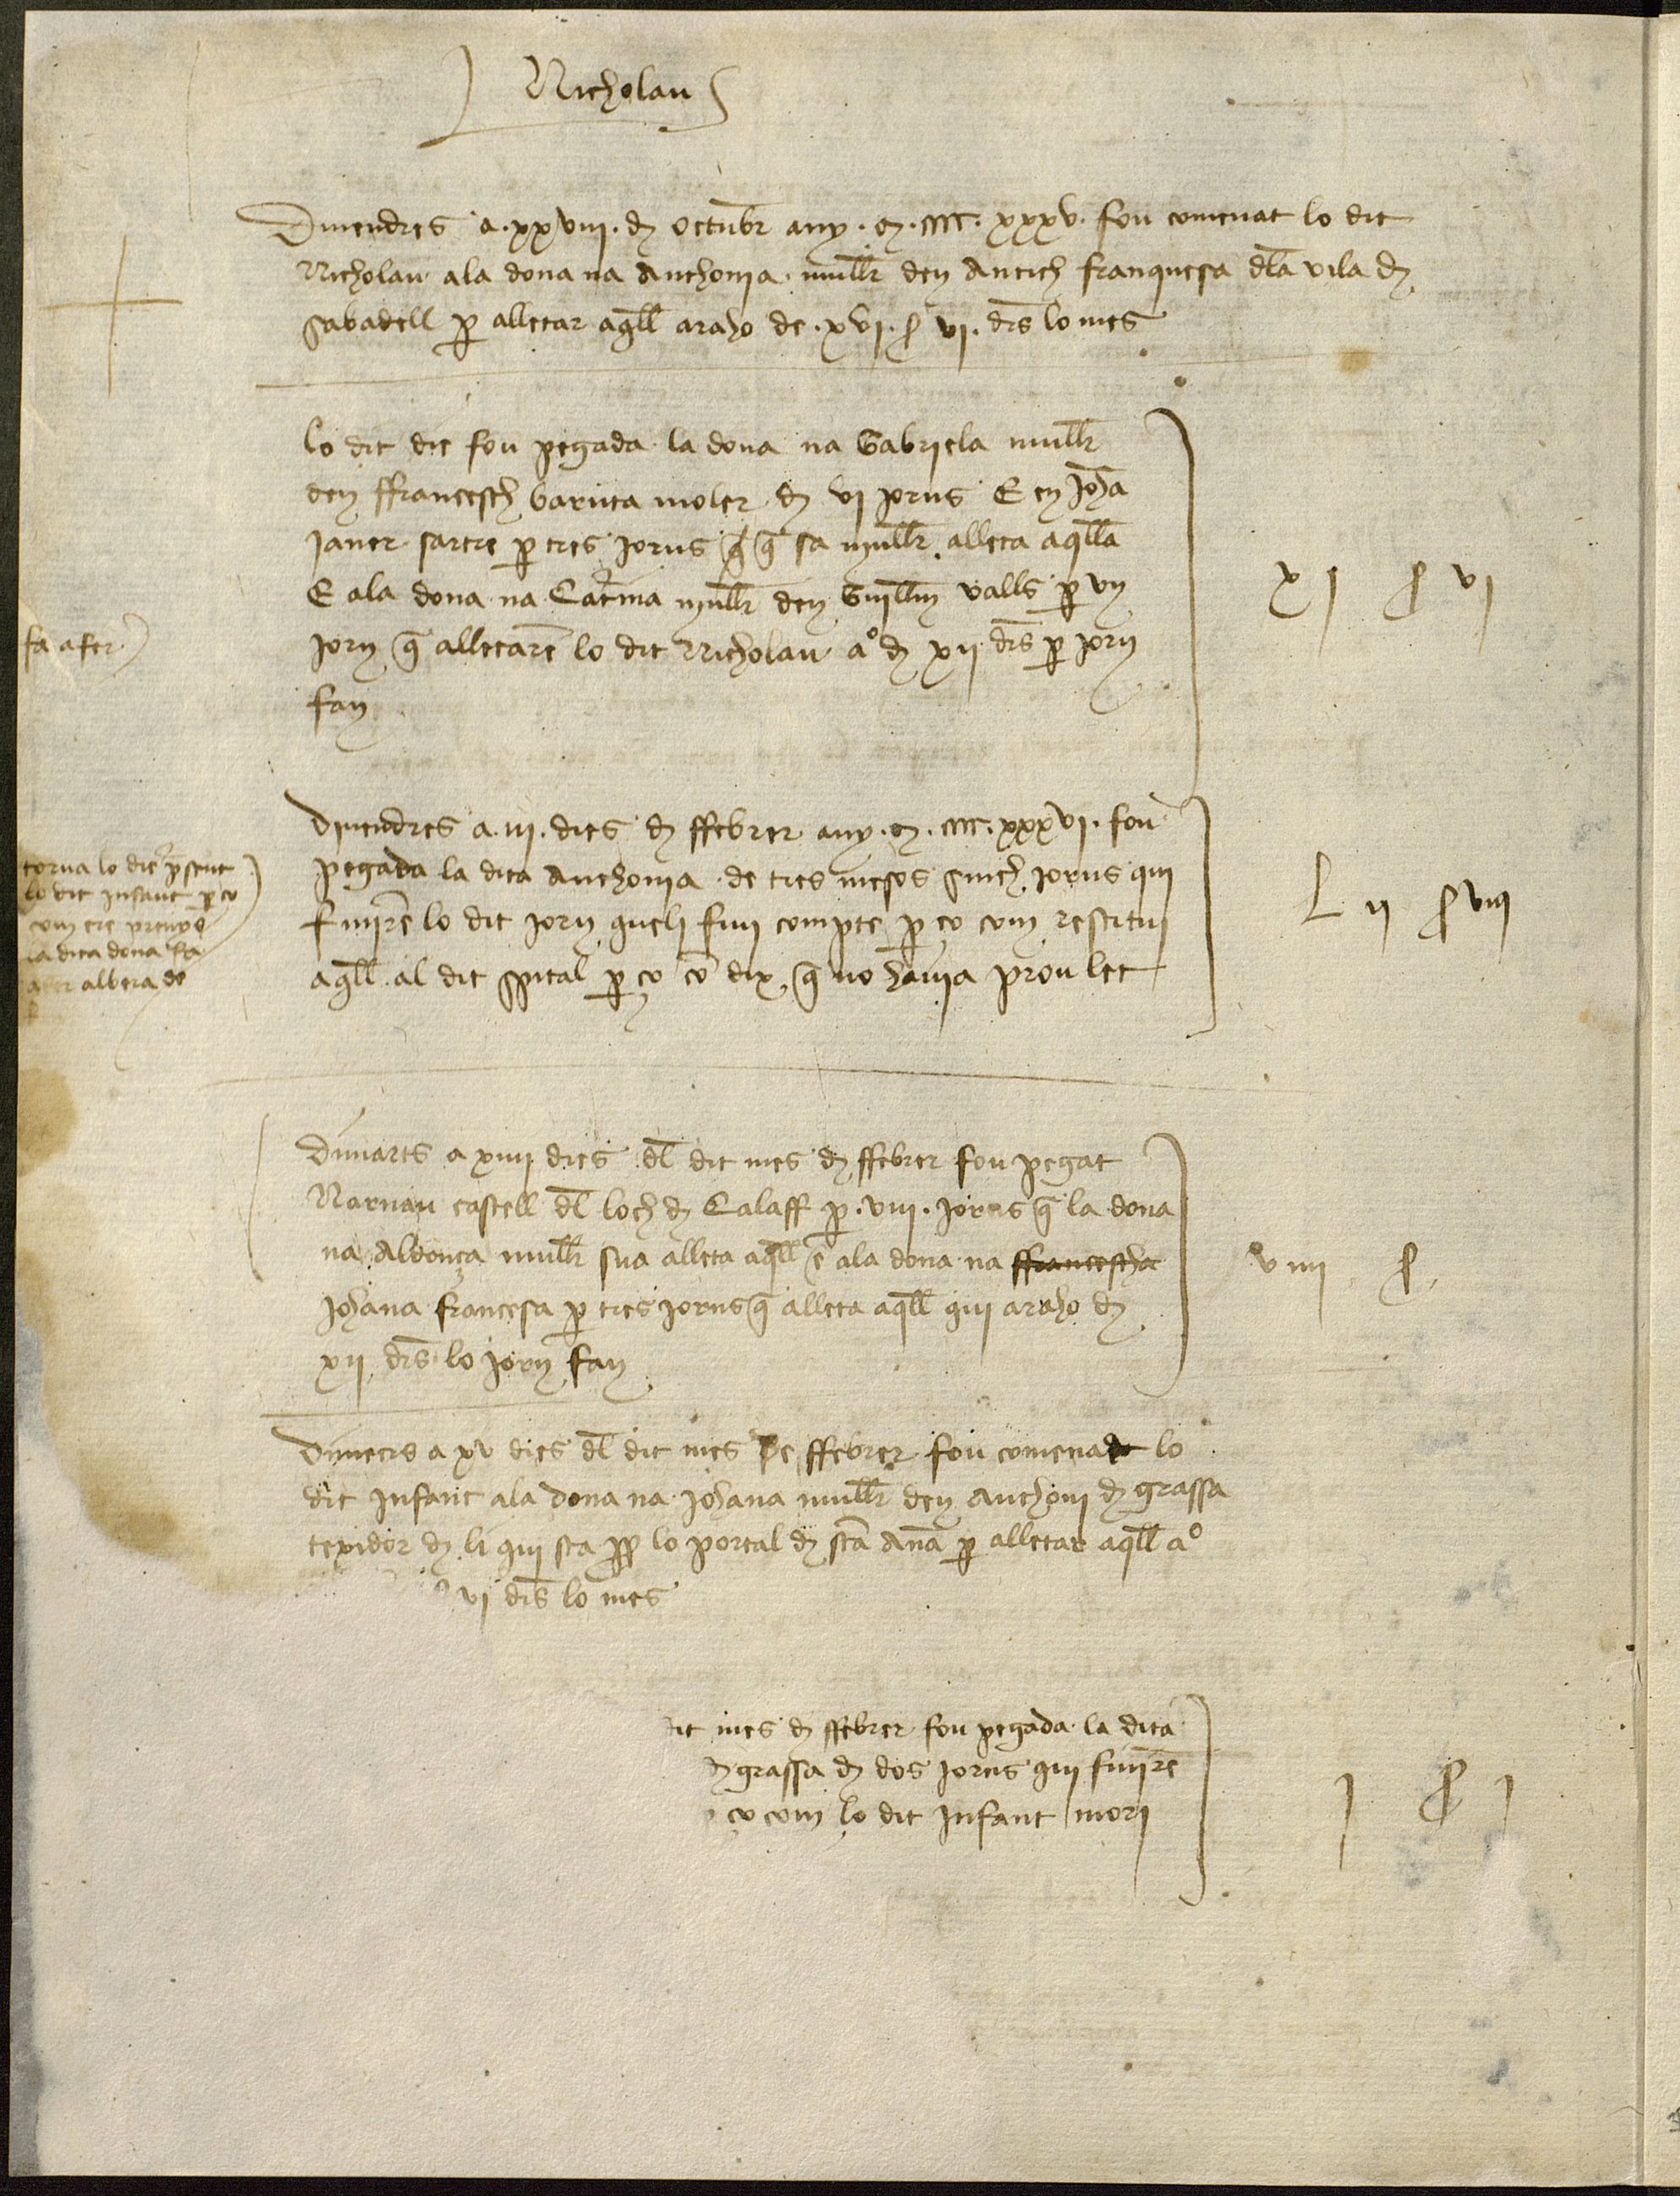 Nicholau
Divendres a . xxviii . d octubr any . m . cccc . xxxv . fou comenat lo dit
Nicholau ala dona na Anthonia . mullr den Antich franquesa dla vila d
Sabadell p alletar aqll araho de . xvi . s vi . drs lo mes
lo dit die fou pegada la dona na Gabriela mullr
den ffrancesch baruta moler d vi jorns E en Joha
Janer sartre p tres jorns q sa mullr alleta aqlla
E ala dona na Catina mullr den Guillm valls p vn
jorn q alletare lo dit Nicholau a° d xii drs p jorn
fan
xi s vi
fa afer
Divendres a . iii . dies d ffebrer any . m . cccc . xxxvi . fou
pegada la dita Anthonia . de tres mesos sinch jorns qui
finire lo dit jorn queli fiu compte p ço com restitui
aqll al dit spital p ço co dix q no havia prou let
L ii s viii
torna lo dit psent
lo dit infant p ço
com ere prenys
la dita dona fa
afer albera de
Dimarts a xiiii dies dl dit mes d ffebrer fou pegat
Narnau castell dl loch d Calaff p . viii . jorns q la dona
na Aldonça mullr sua alleta aqll e ala dona na ffrancescha
Johana francesa p tres jorns q alleta aqll qui araho d
xii drs lo jorn fan
viiii s
Dimecrs a xv dies dl dit mes de ffebrer fou comenat lo
dit infant ala dona na Johana mullr den Anthoni d grassa
texidor d li qui sta pp lo portal d sta Ana p alletar aqll a°
vi drs lo mes
dit mes d ffebrer fou pegada la dita
d grassa d dos jorns qui finire
ço com lo dit infant mori
j s j